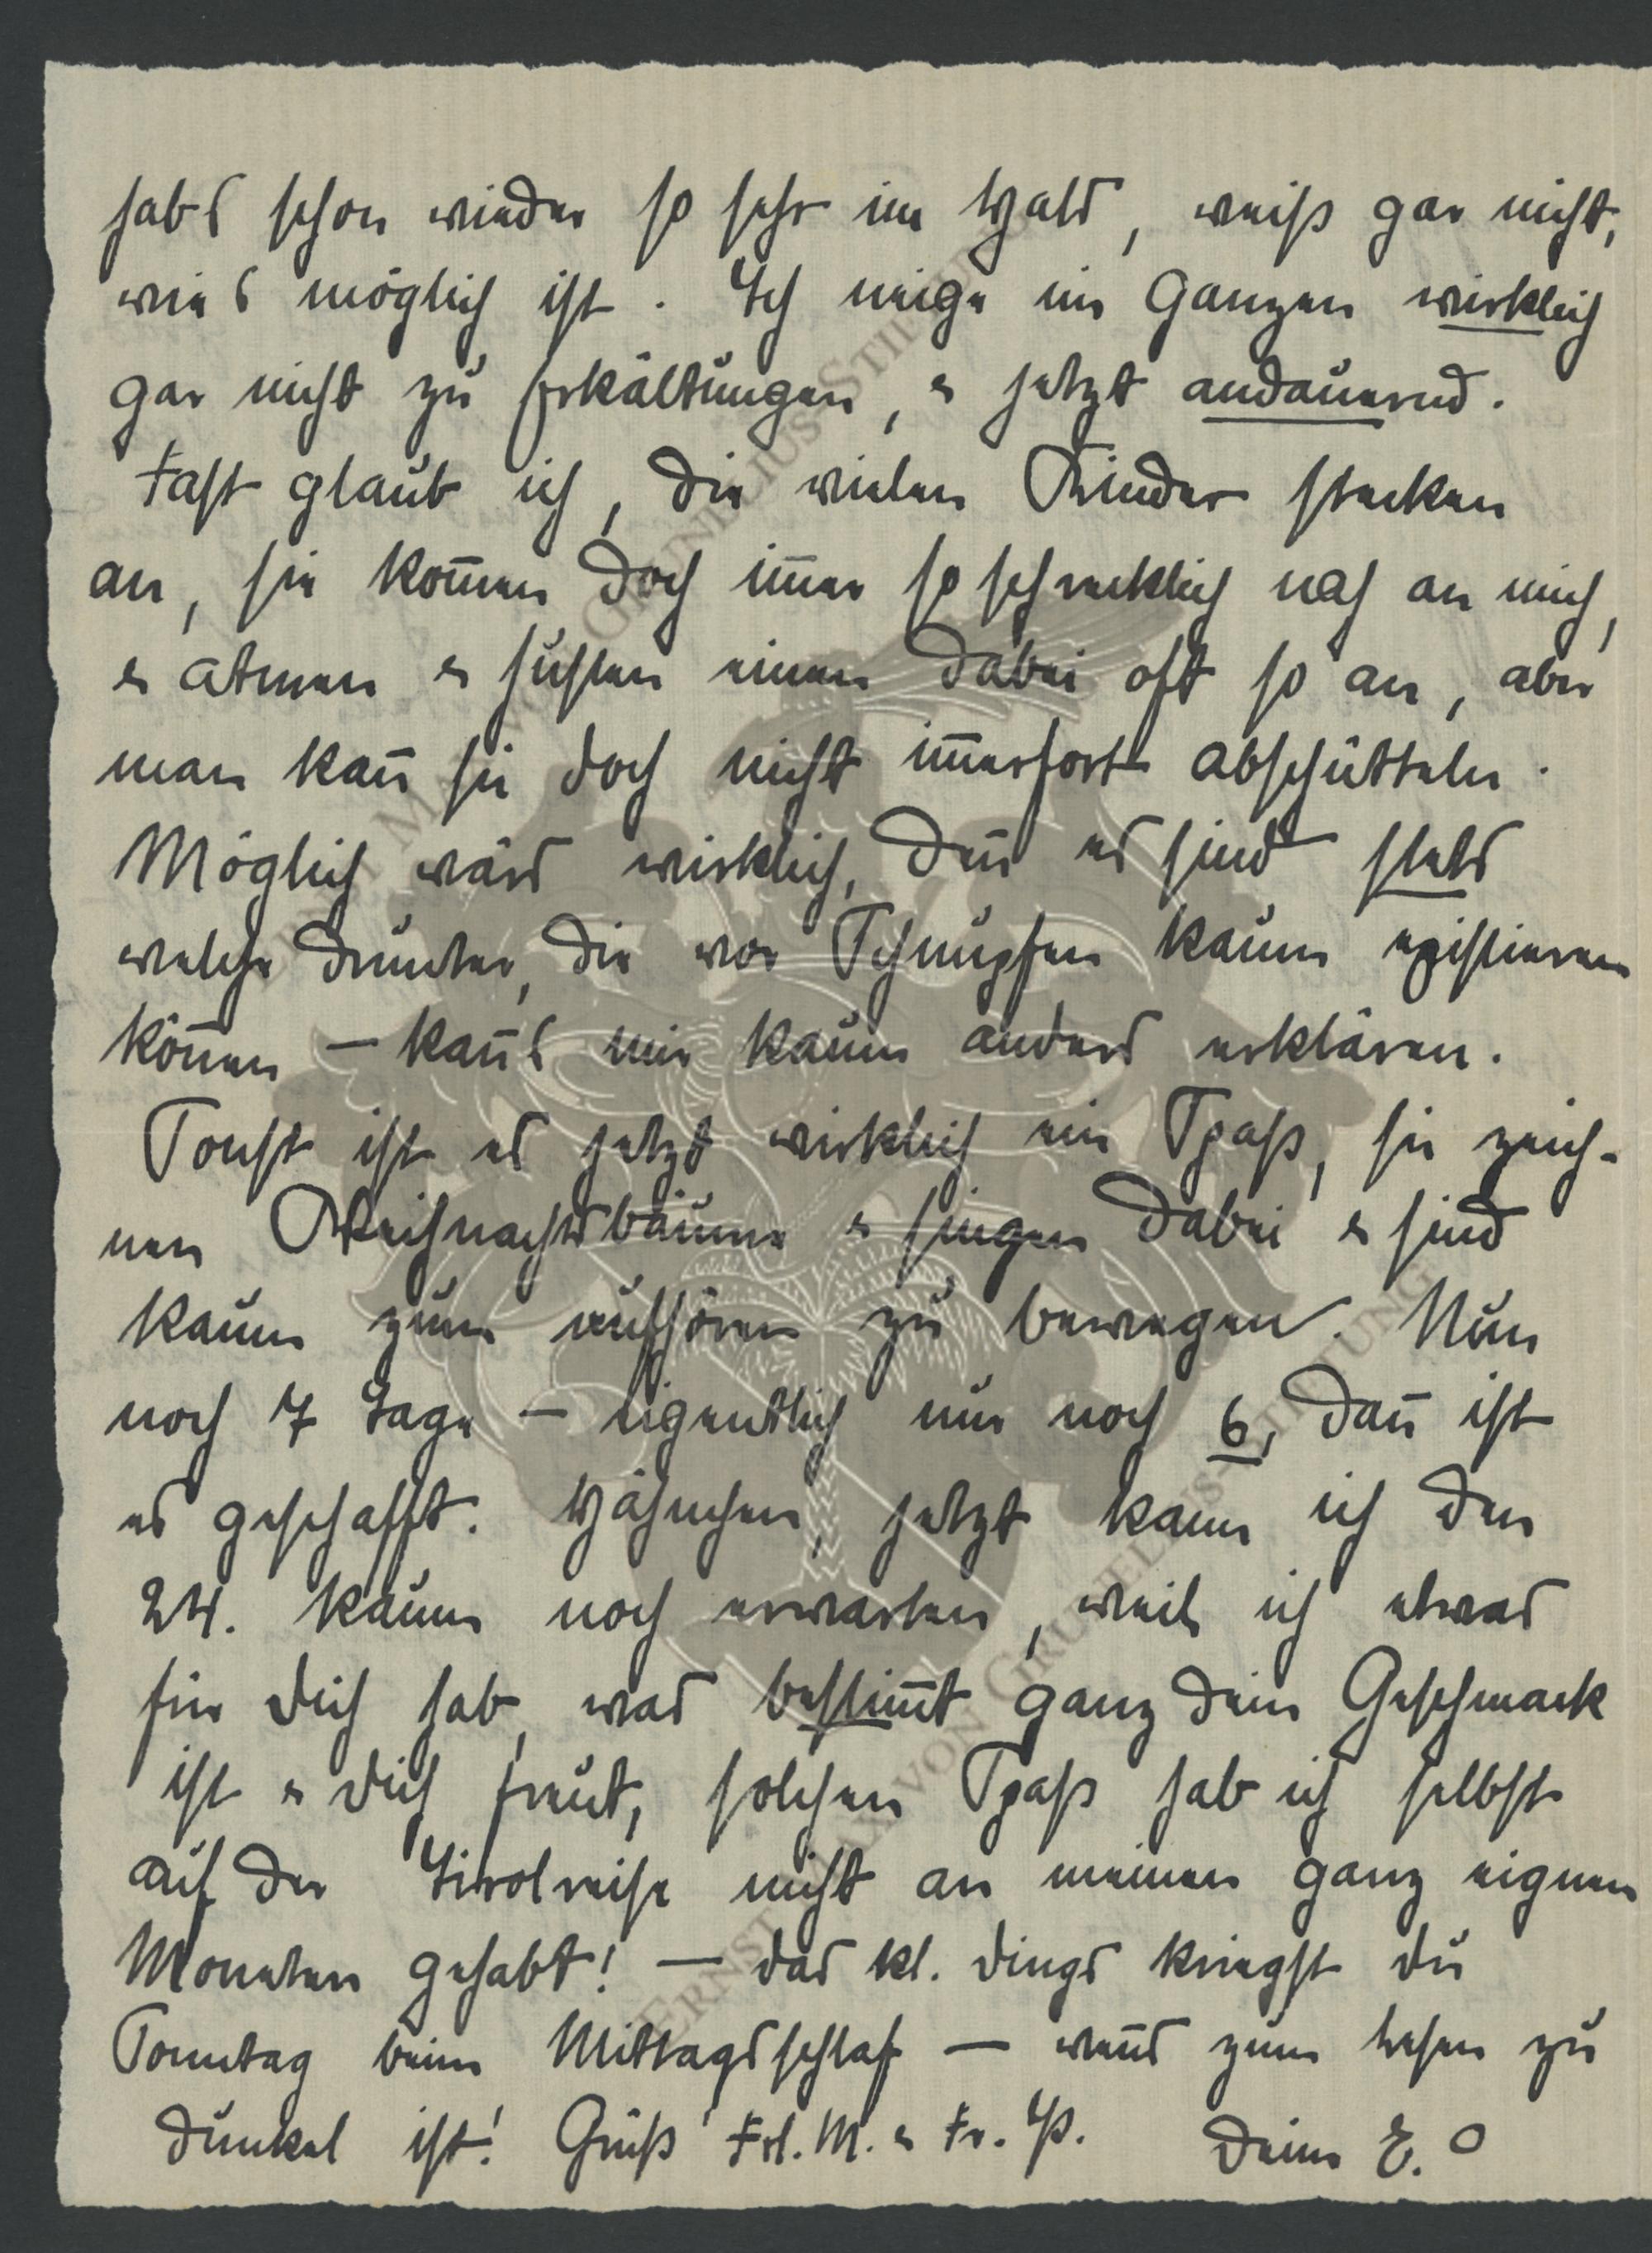 habs schon wieder so sehr im Hals, weiß gar nicht,
wies möglich ist. Ich neige im Ganzen wirklich
gar nicht zu Erkältungen, u jetzt andauernd.
Fast glaub ich, die vielen Kinder stecken
an, sie kom̄en doch im̄er so schrecklich nah an mich,
u atmen u husten einen dabei oft so an, aber
man kan̄ sie doch nicht im̄erfort abschütteln.
Möglich wärs wirklich, den̄ es sind stets
welche drunter, die vor Schnupfen kaum existieren
kön̄en – kan̄s mir kaum anders erklären.
Sonst ist es jetzt wirklich ein Spaß, sie zeich-
nen Weihnachtsbäume u singen dabei u sind
kaum zum aufhören zu bewegen. Nun
noch 7 Tage – eigentlich nur noch 6, dan̄ ist
es geschafft. Hähnchen, jetzt kann ich den
24. kaum noch erwarten, weil ich etwas
für Dich hab, was bestim̄t ganz Dein Geschmack
ist u Dich freut, solchen Spaß hab ich selbst
auf der Tirolreise nicht an meinen ganz eignen
Moneten gehabt! – das kl. Dings kriegst Du
Sonntag beim Mittagsschlaf – wen̄s zum lesen zu
dunkel ist! Grüß' Frl. M. u Fr. P. Deine E. O
ERNST MAX VON GRUNELIUS-STIFTUNG